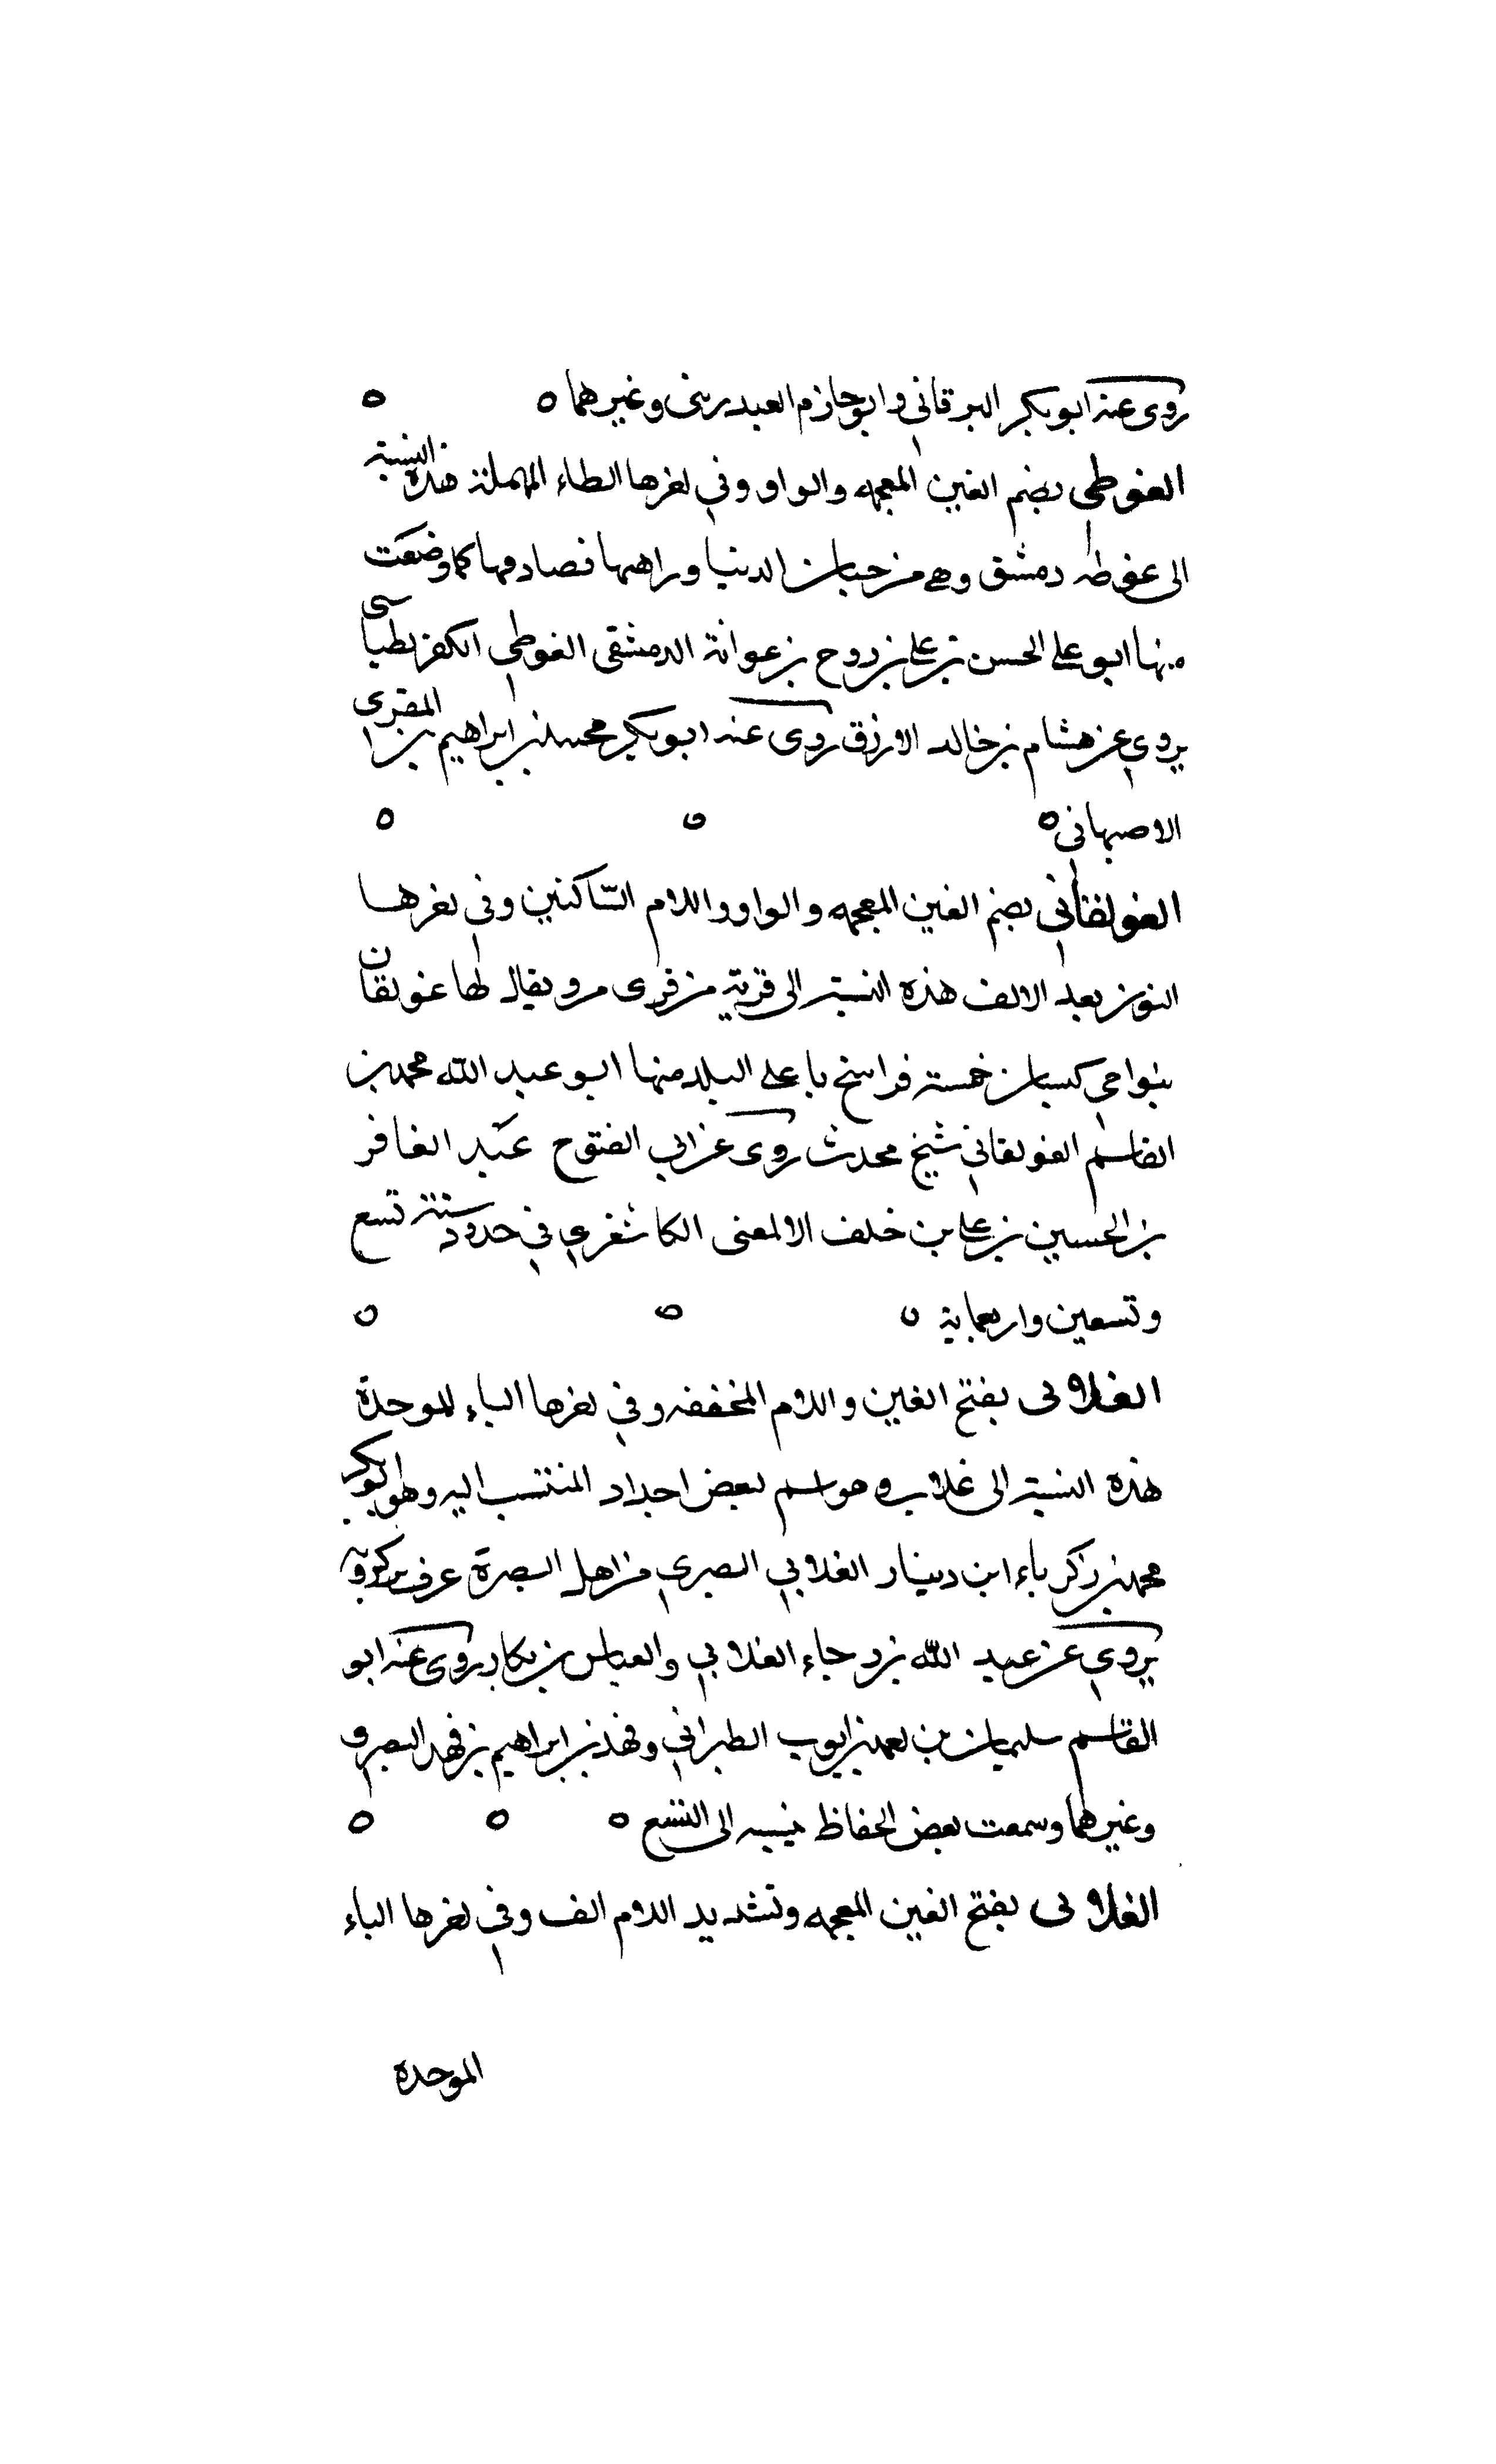 روى عنه ابو بكر البرقاني وابو حازم العبدريني وغيرهما ه ه
الغوطي بضم الغين المعجمه والواو وفي اخرها الطاء المهملة هذه النسبة
الى غوطه دمشق وهي من جنان الدنيا وراهيها فصادفها كما وضعت
منها ابو علي الحسن بن علي بن روح بن عوانة الدمشقي الغوطي الكفربطناسى
يروي عن هشام بن خالد الازرق روى عنه ابو بكر محمد بن ابراهيم بن المقرى
الاصبهاني ه ه ه
الغولقاني بضم الغين المعجمه والواو واللام الساكنين وفي اخرها
النون بعد الالف هذه النسبة الى قرية من قرى مرو يقال لها غولقان
بنواحي كسبان خمسة فراسخ با على البلد منها ابو عبد الله محمد بن
القاسم الغولقاني شيخ محدث روى عن ابي الفتوح عبد الغافر
بن الحسين بن علي بن خلف الالمعنى الكاشغري في حدود سنة تسع
وتسعين واربعماية ه ه ه
الغلابى بفتح الغين واللام المخففه وفي اخرها الباء الموحدة
هذه النسبة الى غلاب وهو اسم بعض اجداد المنتسب اليه وهو ابو بكر
محمد بن زكرياء ابن دينار الغلابي البصري من اهل البصرة عرف بزكرويه
يروي عن عبد الله بن رجاء الغلابي والعباس بن بكار روى عنه ابو
القاسم سليمان بن احمد بن ايوب الطبراني وفهد بن ابراهيم بن فهد البصري
وغيرهما وسمعت بعض الحفاظ ينسبه الى التشيع ه ه ه
الغلابى بفتح الغين المعجمه وتشديد اللام الف وفي اخرها الباء
الموحدة